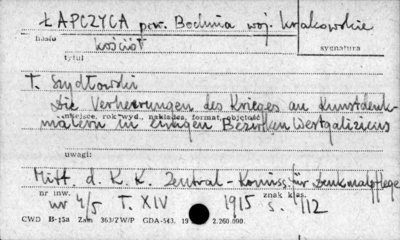 ŁAPCZYCA pow. Bochnia woj. krakowskie
hasło
kościół
sygnatura
tytuł
T. Szydłowski
Die Verheerungen des Krieges an Kunstdenk-
miejsce, rok wyd., nakładca, format, objętość
mälern in einigen Bezirken Westgaliziens
uwagi:
Mitt. d. K. K. Zentral-Komiss. für Denkmalpflege
nr inw. znak klas.
nr 4/5 T. XIV 1915 s. 112
CWD B-13a Zam 363/ZW/P GDA-543. 19 2.260.000.